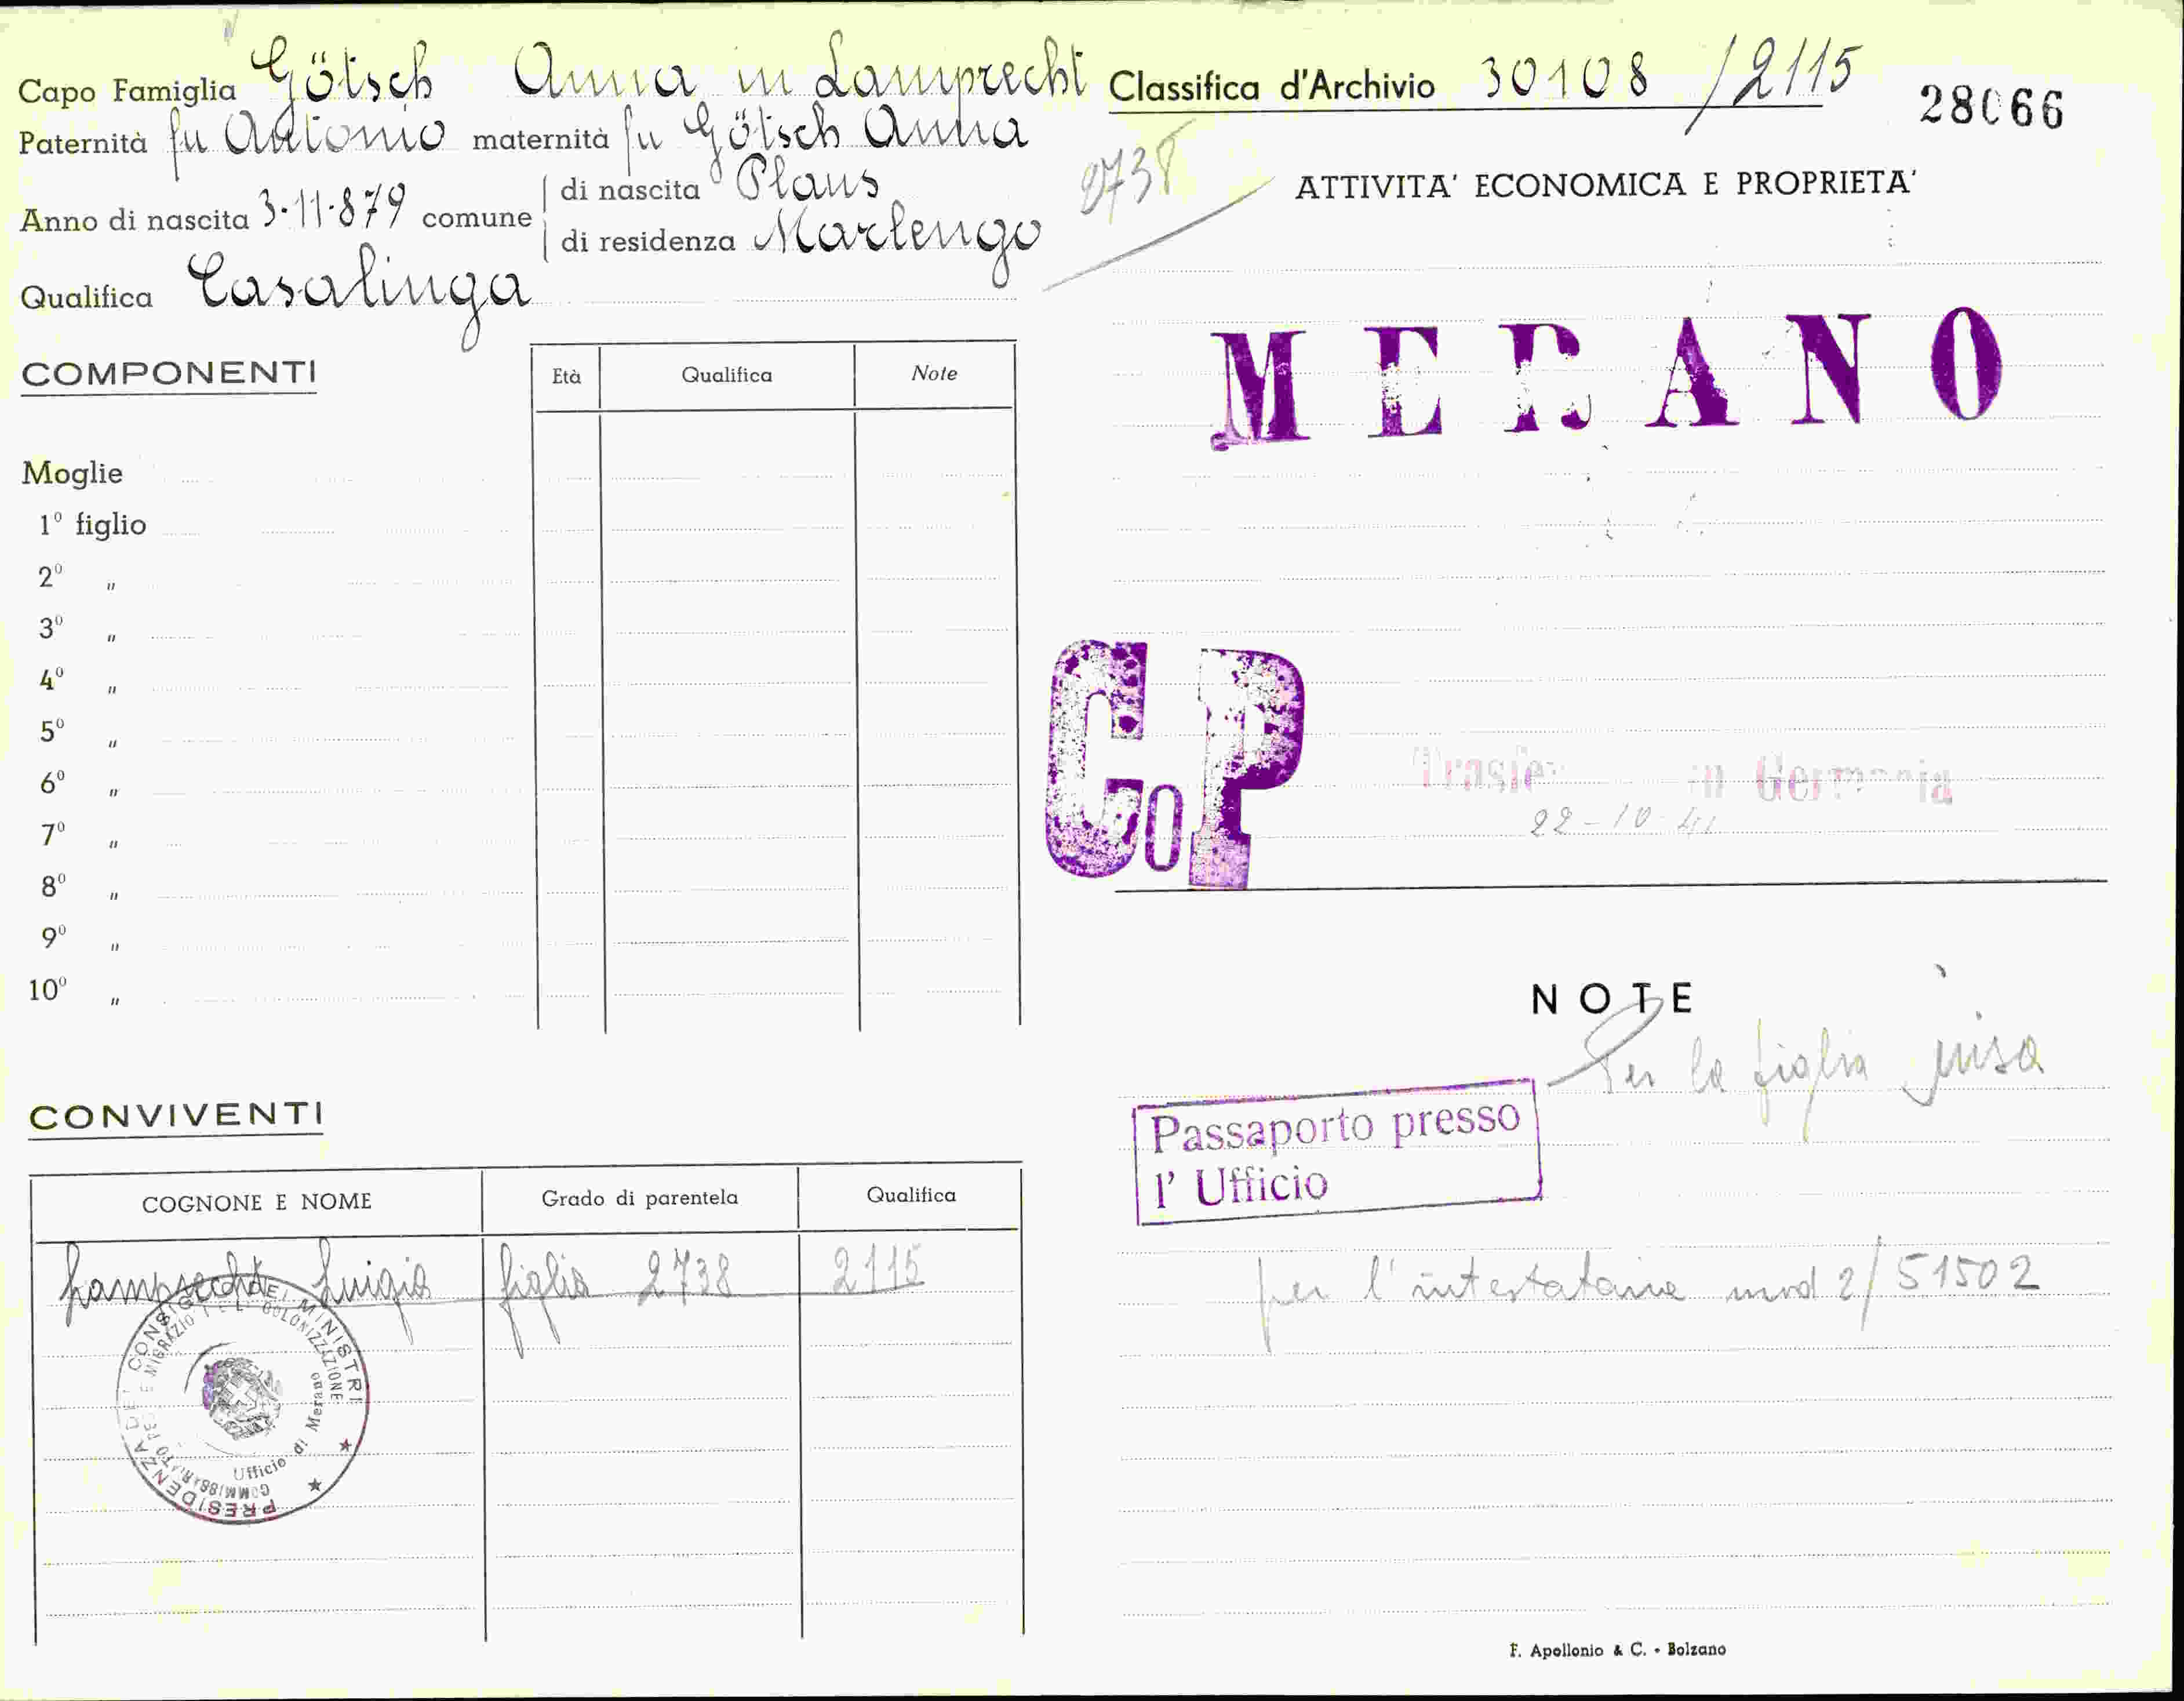 Capo Famiglia Götsch Anna in Lamprecht
Paternità fu Antonio maternità fu Götsch Anna
Anno di nascita 3-11-879 comune di nascita Plaus
di residenza Marlengo
Qualifica Casalinga
COMPONENTI
Età Qualifica Note
Moglie
1º figlio
2º "
3º "
4º "
5º "
6º "
7º "
8º "
9º "
10º "
CONVIVENTI
COGNONE E NOME Grado di parentela Qualifica
Lamprecht Luigia figlia 2738 2115
PRESIDENZA DEL CONSIGLIO DEI MINISTRI
Ufficio di Merano
Classifica d'Archivio 30108 /2115
28066
2738
ATTIVITA' ECONOMICA E PROPRIETA'
MERANO
CoP
in Germania
22-10-41
NOTE
Per la figlia
Passaporto presso
l' Ufficio
per l'intestataria mod 2/51502
F. Apollonio & C. - Bolzano